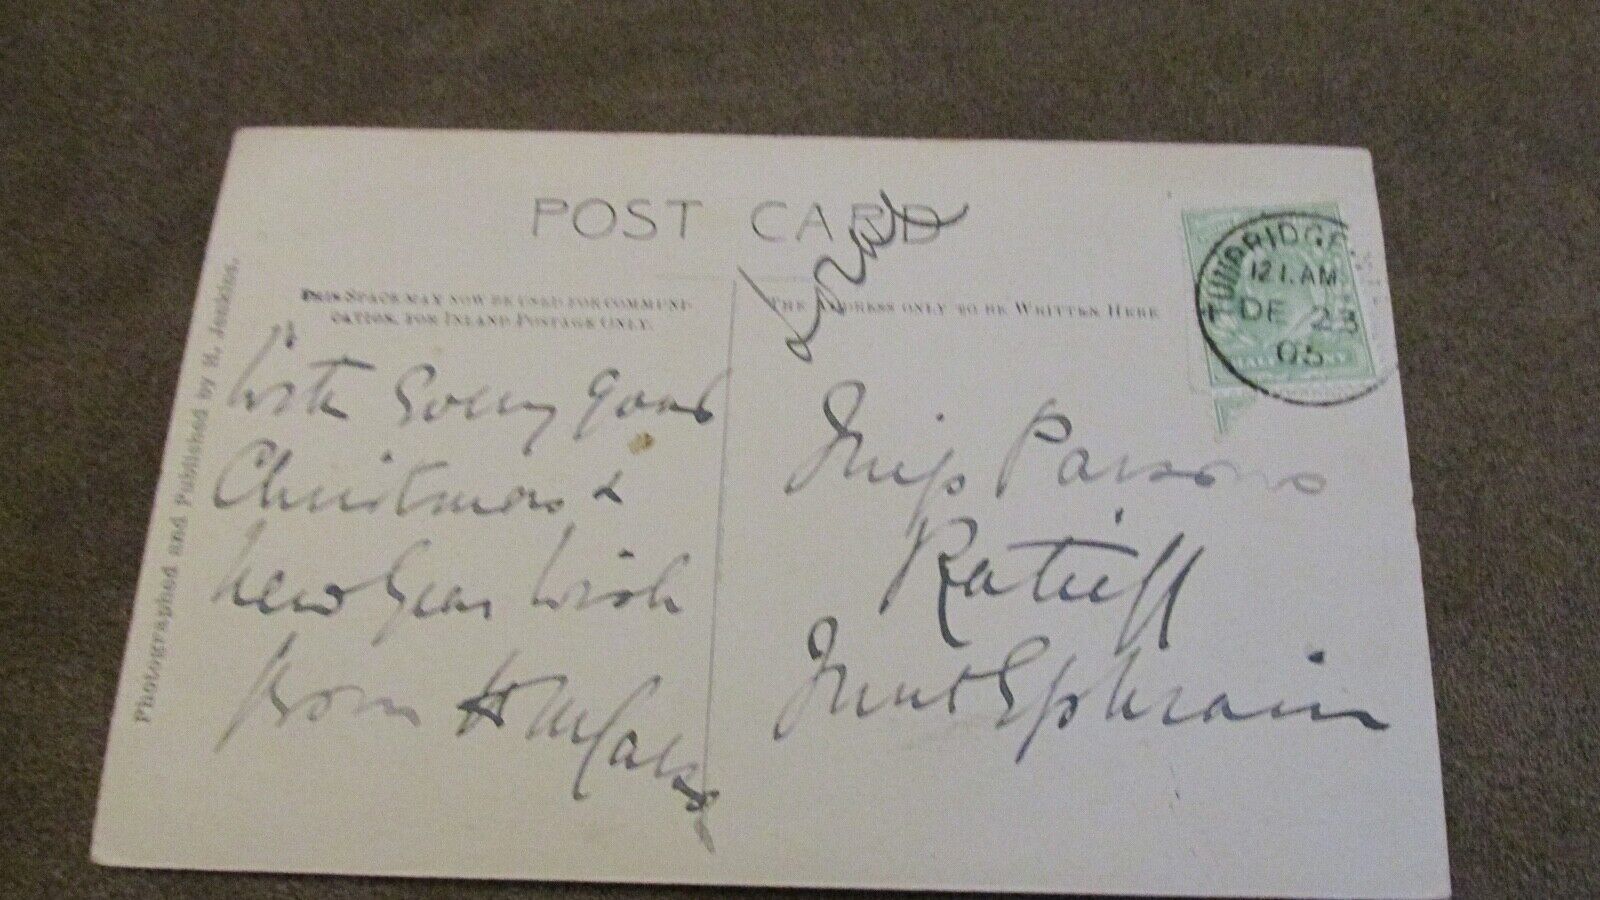 POST CARD
THIS SPACE MAY NOW BE USED FOR COMMUNI-
CATION, FOR INLAND POSTAGE ONLY.
THE ADDRESS ONLY TO BE WRITTEN HERE
TUNBRIDGE
12 1. AM
DE 23
05
With Every good
Christmas &
New Year Wish
from H
Miss Parsons
Ratcliff
Mount Ephraim
Photographed and Published by H. Jenkins.